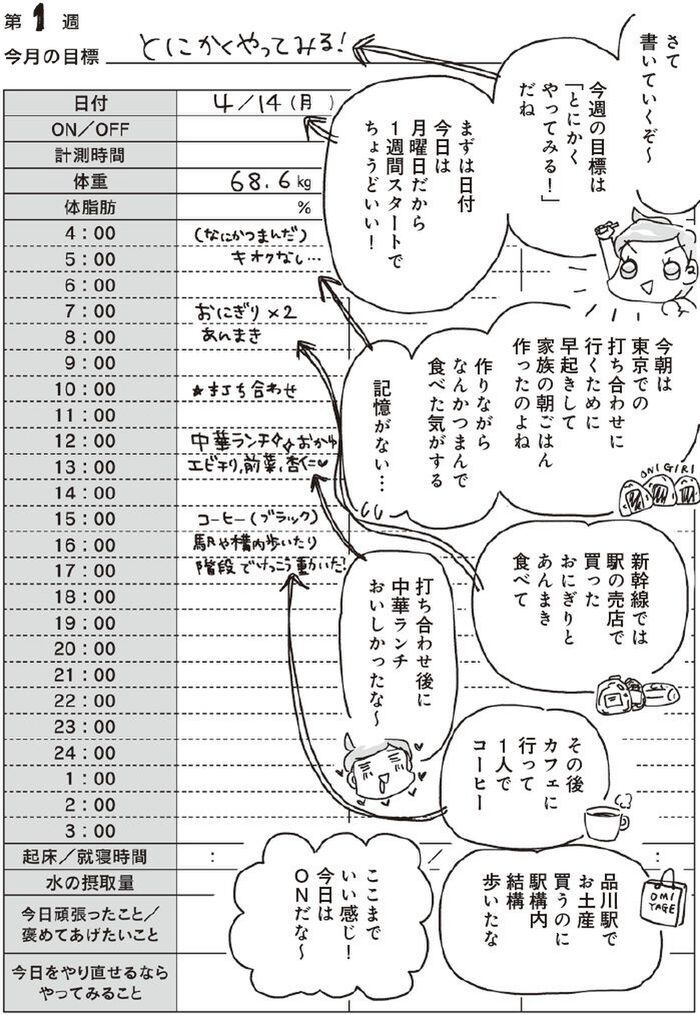 第1週
今月の目標 とにかくやってみる！
さて
書いていくぞ～
今週の目標は
「とにかく
やってみる！」
だね
まずは日付
今日は
月曜日だから
１週間スタートで
ちょうどいい！
今朝は
東京での
打ち合わせに
行くために
早起きして
家族の朝ごはん
作ったのよね
作りながら
なんかつまんで
食べた気がする
記憶がない…
ONIGIRI
新幹線では
駅の売店で
買った
おにぎりと
あんまき
食べて
打ち合わせ後に
中華ランチ
おいしかったな～
その後
カフェに
行って
１人で
コーヒー
品川駅で
お土産
買うのに
駅構内
結構
歩いたな
OMI
YAGE
ここまで
いい感じ！
今日は
ONだな～
日付 4/14(月)
ON／OFF
計測時間
体重 68.6kg
体脂肪 %
4：00 (なにかつまんだ)
5：00 キオクなし…
6：00
7：00 おにぎり×2
8：00 あんまき
9：00
10：00 ★打ち合わせ
11：00
12：00 中華ランチ おかゆ
13：00 エビチリ,前菜,杏仁♡
14：00
15：00 コーヒー(ブラック)
16：00 駅や構内歩いたり
17：00 階段でけっこう動いた！
18：00
19：00
20：00
21：00
22：00
23：00
24：00
1：00
2：00
3：00
起床／就寝時間 : ／
水の摂取量
今日頑張ったこと／
褒めてあげたいこと
今日をやり直せるなら
やってみること